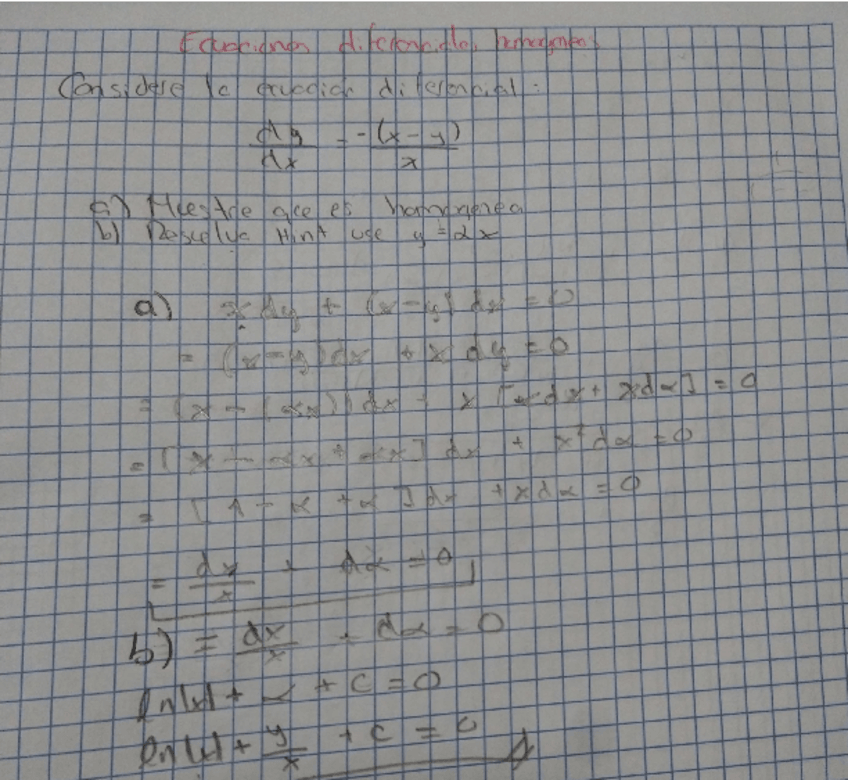 Ecuaciones diferenciales homogeneas
Considere la ecuación diferencial:
dy/dx = -(x-y)/x
a) Muestre que es homogenea
b) Resuelva Hint use y=αx
a) x dy + (x-y) dx = 0
= (x-y)dx + x dy = 0
= (x - (αx))dx + x [αdx + xdα] = 0
= [x - αx + αx] dx + x² dα = 0
= [1 - α + α] dx + xdα = 0
= dx/x + dα = 0
b) = dx/x + dα = 0
ln|x| + α + C = 0
ln|x| + y/x + C = 0